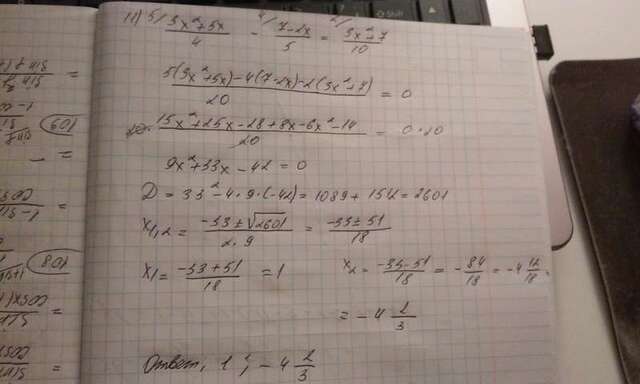 11) 5/ (3x²+5x)/4 - 4/ (7-2x)/5 = 2/ (3x²+7)/10
(5(3x²+5x)-4(7-2x)-2(3x²+7))/20 = 0
20· (15x²+25x-28+8x-6x²-14)/20 = 0·20
9x²+33x-42=0
D = 33²-4·9·(-42)=1089+1512=2601
x1,2 = (-33±√2601)/(2·9) = (-33±51)/18
x1 = (-33+51)/18 = 1 x2 = (-33-51)/18 = -84/18 = -4 12/18 =
= -4 2/3
Ответ, 1; -4 2/3
109
108